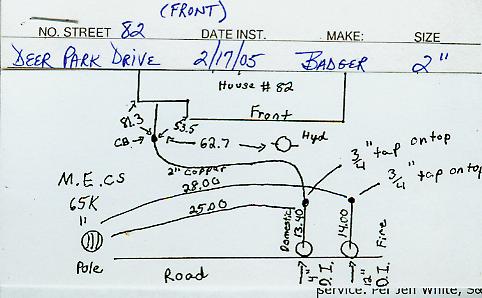 (FRONT)
NO. STREET 82 DATE INST. MAKE: SIZE
DEER PARK DRIVE 2/17/05 BADGER 2"
House # 82
Front
81.3
53.5
CB
62.7
Hyd
3/4" tap on top
3/4" tap on top
2" copper
M.E.CS
65K
11
28.00
25.00
Domestic
13.40
14.00
Fire
Pole
Road
4" D.I.
12" D.I.
service. Per Jen White,